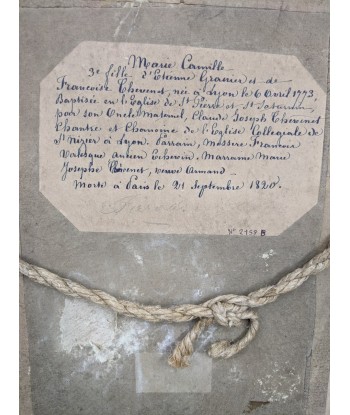 Marie Camille
3e fille d'Etienne Gravier et de
Francoise Thevenet, née à Lyon le 6 Avril 1773,
Baptisée en l'Eglise de St Pierre et St Saturnin
par son Oncle Maternel, Claude Joseph Thevenet
Chantre et Chanoine de l'Eglise Collegiale de
St Nizier à Lyon. Parrain, Messire Francois
Valesque ancien Echevin, Marraine Marie
Josephe Thévenet, veuve Armand —
Morte à Paris le 21 Septembre 1820.
N° 2159 B